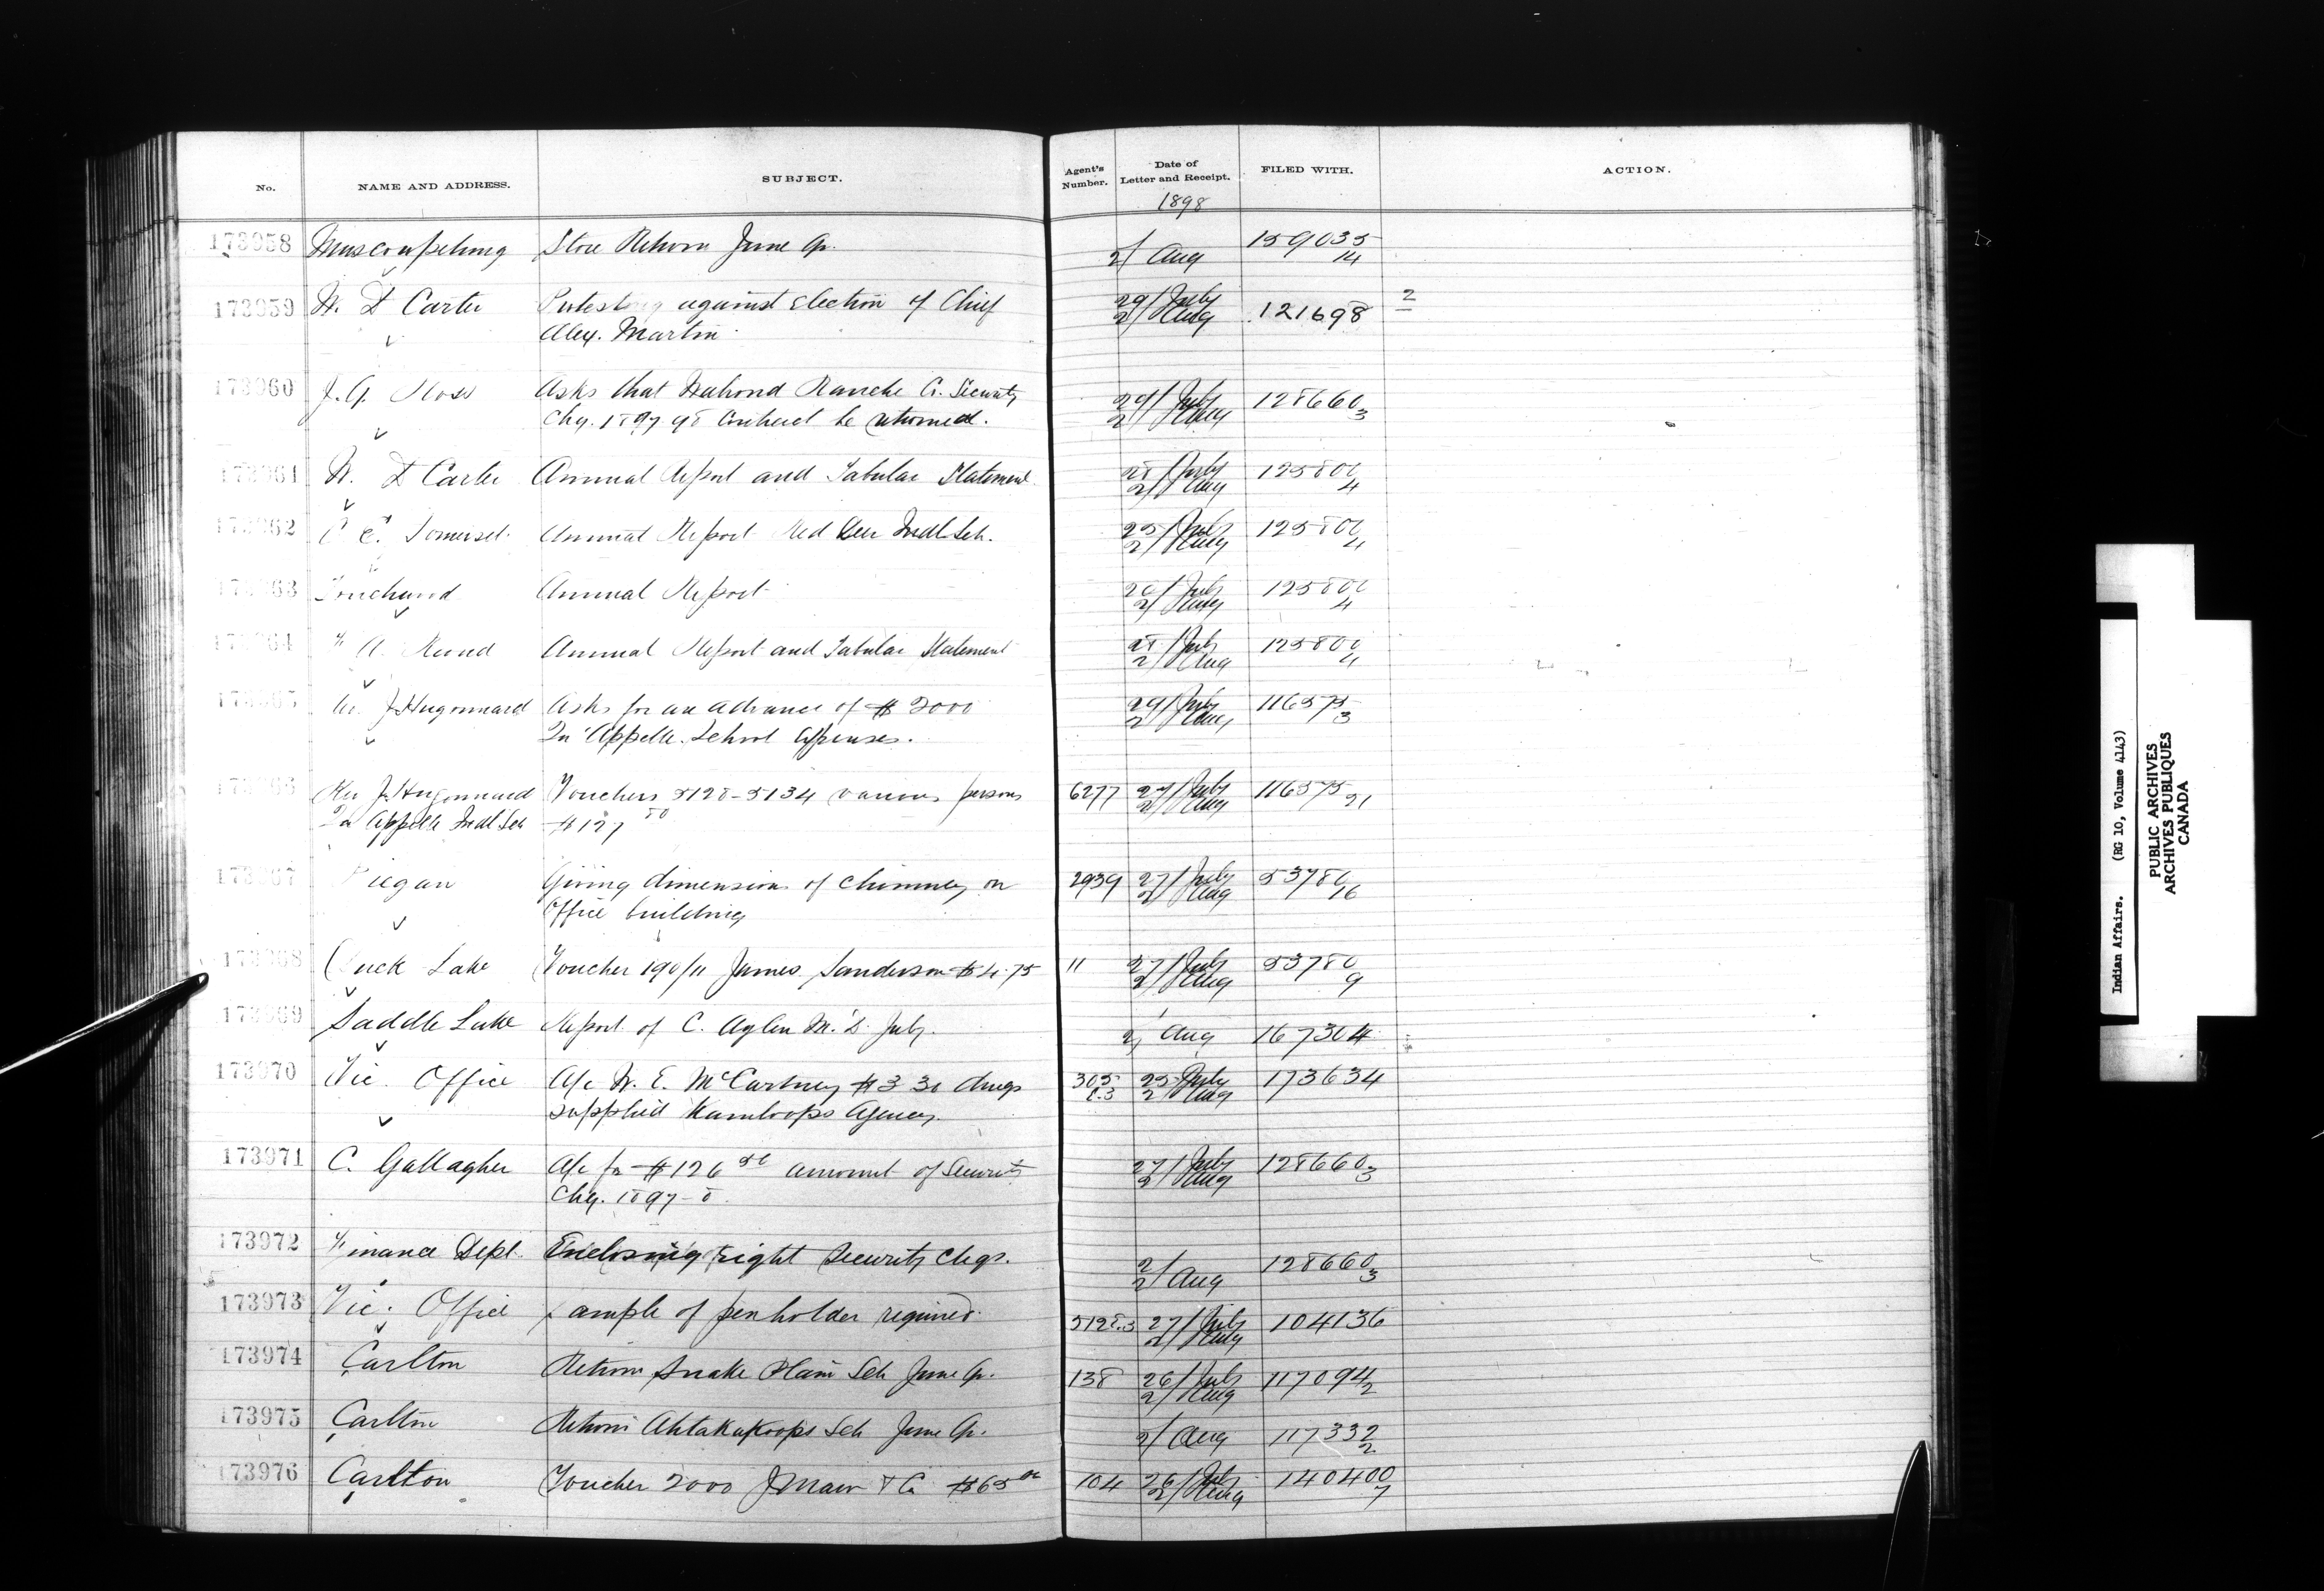 No. NAME AND ADDRESS. SUBJECT. Agent's Number. Date of Letter and Receipt. FILED WITH. ACTION.
1898
173958 Muscowpetung Store Return June Qr. 2/ Aug 159035/14
173959 W. D Carter Protesting against election of Chief 29/July 2/Aug 121698 2
Alex. Martin
173960 J. G. Asks that Walrond Ranche Co. Security 29/July 2/Aug 128660/3
Chq. 1897-98 Contract be returned.
173961 W. D Carter Annual Report and Tabular Statement 28/July 2/Aug
173962 C E. Somerset Annual Report Red Deer Indl Sch. 25/July 2/Aug
173963 Touchwood Annual Report July 2/Aug
173964 Annual Report and Tabular Statement 28/July 2/Aug
173965 J. Hugonnard Asks for an advance of $2000 29/July 2/Aug 116575/3
Qu'Appelle School Expenses.
173966 Rev J. Hugonnard Vouchers 5128-5134 various persons 6277 July 2/Aug 116575/21
Qu'Appelle Indl Sch $127
173967 Piegan Giving dimensions of chimney on 2939 27/July 2/Aug 53780/16
Office building
173968 Duck Lake Voucher 190/11 James Sanderson $4.75 11 27/July 2/Aug 53780/9
173969 Saddle Lake Report of C. Aylen M.D. July. 2/ Aug 167304
173970 Vic. Office A/c W. E. McCartney $3 drugs 305 C.3 25 July 2/Aug 173634
supplied Kamloops Agency.
173971 C. Gallagher A/c for $126 amount of Security 27/July 2/Aug 128660/3
Chq. 1897-8.
173972 Finance Dept. Enclosing eight Security Chqs. 2/ 2/ Aug 128660/3
173973 Vic. Office Sample of penholder required. 27/July 2/Aug 104136
173974 Carlton Return Snake Plain Sch June Qr. 138 26/July 2/Aug 117094/2
173975 Carlton Return Ahtakakoops Sch June Qr. 2/ Aug 117332/2
173976 Carlton Voucher 2000 J Maw & Co $65 104 26/July 2/Aug 140400/7
Indian Affairs. (RG 10, Volume 4143)
PUBLIC ARCHIVES
ARCHIVES PUBLIQUES
CANADA